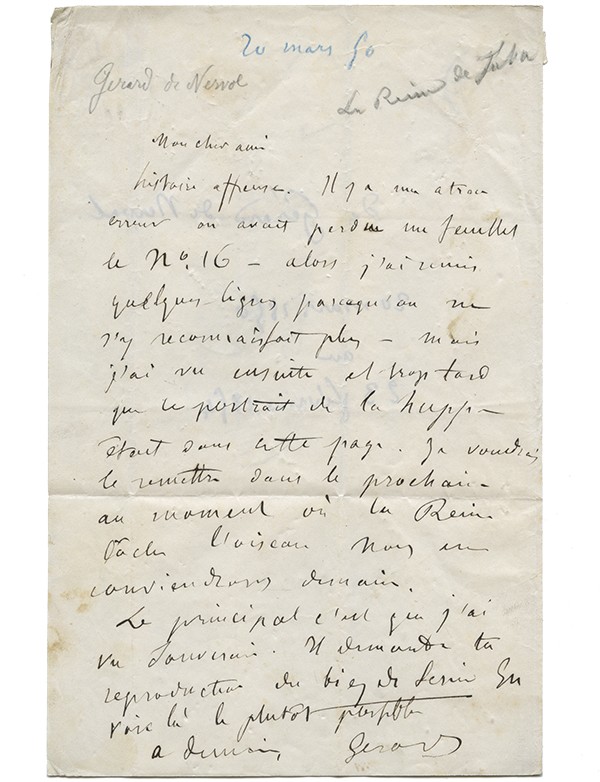 20 mars 50
Gerard de Nerval
La Reine de Saba
Mon cher ami
histoire affreuse. Il y a une atroce
erreur on avait perdu un feuillet
le No. 16 – alors j'ai remis
quelques lignes parcequ'on ne
s'y reconnaissait plus – mais
j'ai vu ensuite et trop tard
que le portrait de la huppe
était dans cette page. Je voudrais
le remettre dans le prochain
au moment où la Reine
lâche l'oiseau Nous en
conviendrons demain.
Le principal c'est que j'ai
vu Souverain. Il demande ta
reproduction du
voie là le plutot possible
a demain, Gerard